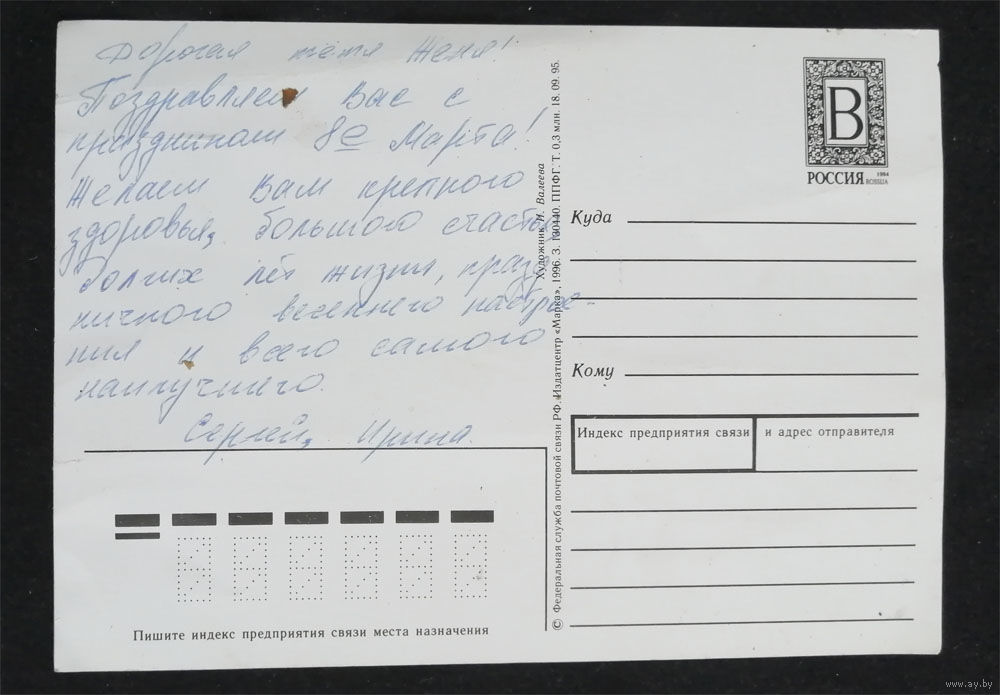 Дорогая тётя Женя!
Поздравляем Вас с
праздником 8е Марта!
Желаем Вам крепного
здоровья, большого счастья,
долгих лет жизни, празд-
ничного весеннего настрое-
ния и всего самого
наилучшего.
Сергей, Ирина.
Пишите индекс предприятия связи места назначения
© Федеральная служба почтовой связи РФ. Издатцентр «Марка», 1996. З. 130440. ППФГ. Т. 0,3 млн. 18. 09. 95.
Художник Н. Валеева
В
РОССИЯ 1994 ROSSIJA
Куда
Кому
Индекс предприятия связи и адрес отправителя
www.ay.by